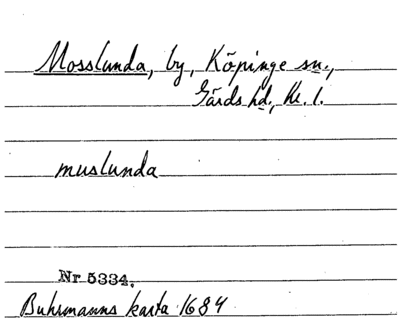 Mosslunda, by, Köpinge sn.,
Gärds hd., Kr. l.
muslunda
Nr 5334.
Buhrmanns karta 1684